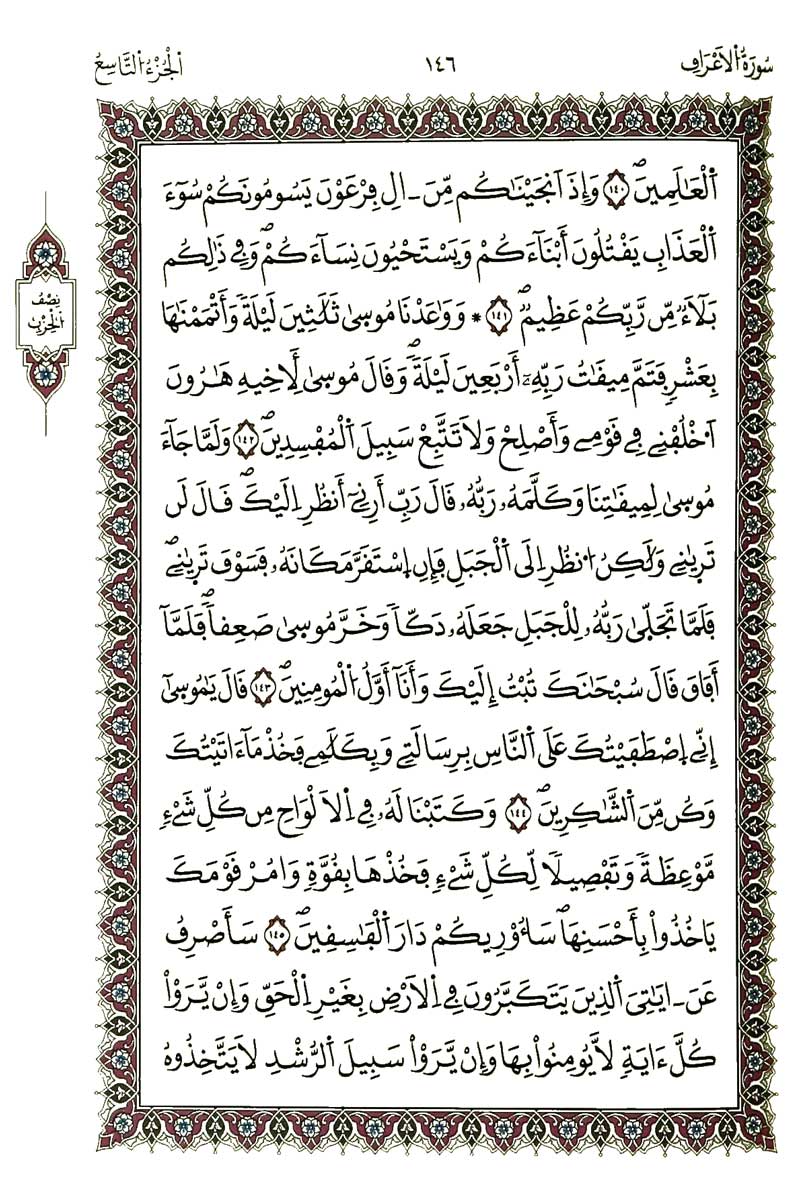 سُورَةُ الْأَعْرَافِ
١٤٦
الْجُزْءُ التَّاسِعُ
اَ۬لْعَٰلَمِينَۖ ١٤٠ وَإِذَ اَنجَيْنَٰكُم مِّنَ ـ الِ فِرْعَوْنَ يَسُومُونَكُمْ سُوٓءَ
اَ۬لْعَذَابِ يَقْتُلُونَ أَبْنَآءَكُمْ وَيَسْتَحْيُونَ نِسَآءَكُمْۖ وَفِے ذَٰلِكُم
بَلَآءٞ مِّن رَّبِّكُمْ عَظِيمٞۖ ١٤١ * وَوَٰعَدْنَا مُوس۪ىٰ ثَلَٰثِينَ لَيْلَةٗ وَأَتْمَمْنَٰهَا
بِعَشْرٖ فَتَمَّ مِيقَٰتُ رَبِّهِۦٓ أَرْبَعِينَ لَيْلَةٗۖ وَقَالَ مُوس۪ىٰ لِأَخِيهِ هَٰرُونَ
اَ۟خْلُفْنِے فِے قَوْمِے وَأَصْلِحْ وَلَا تَتَّبِعْ سَبِيلَ اَ۬لْمُفْسِدِينَۖ ١٤٢ وَلَمَّا جَآءَ
مُوس۪ىٰ لِمِيقَٰتِنَا وَكَلَّمَهُۥ رَبُّهُۥ قَالَ رَبِّ أَرِنِےٓ أَنظُرِ اِلَيْكَۖ قَالَ لَن
تَر۪ىٰنِے وَلَٰكِنُ اُ۟نظُرِ اِلَى اَ۬لْجَبَلِ فَإِنِ اِ۪سْتَقَرَّ مَكَانَهُۥ فَسَوْفَ تَر۪ىٰنِےۖ
فَلَمَّا تَجَلّ۪ىٰ رَبُّهُۥ لِلْجَبَلِ جَعَلَهُۥ دَكّاٗ وَخَرَّ مُوس۪ىٰ صَعِقاٗۖ فَلَمَّآ
أَفَاقَ قَالَ سُبْحَٰنَكَ تُبْتُ إِلَيْكَ وَأَنَآ أَوَّلُ اُ۬لْمُومِنِينَۖ ١٤٣ قَالَ يَٰمُوس۪ىٰٓ
إِنِّے اِ۪صْطَفَيْتُكَ عَلَى اَ۬لنَّاسِ بِرِسَالَتِے وَبِكَلَٰمِے فَخُذْ مَآ ءَاتَيْتُكَ
وَكُن مِّنَ اَ۬لشَّٰكِرِينَۖ ١٤٤ وَكَتَبْنَا لَهُۥ فِے اِ۬لَالْوَاحِ مِن كُلِّ شَےْءٖ
مَّوْعِظَةٗ وَتَفْصِيلاٗ لِّكُلِّ شَےْءٖ فَخُذْهَا بِقُوَّةٖ وَامُرْ قَوْمَكَ
يَاخُذُواْ بِأَحْسَنِهَاۖ سَأُوْرِيكُمْ دَارَ اَ۬لْفَٰسِقِينَۖ ١٤٥ سَأَصْرِفُ
عَنَ ـ ايَٰتِيَ اَ۬لذِينَ يَتَكَبَّرُونَ فِے اِ۬لَارْضِ بِغَيْرِ اِ۬لْحَقِّ وَإِنْ يَّرَوْاْ
كُلَّ ءَايَةٖ لَّا يُومِنُواْ بِهَا وَإِنْ يَّرَوْاْ سَبِيلَ اَ۬لرُّشْدِ لَا يَتَّخِذُوهُ
نِصْفُ
الْحِزْبِ